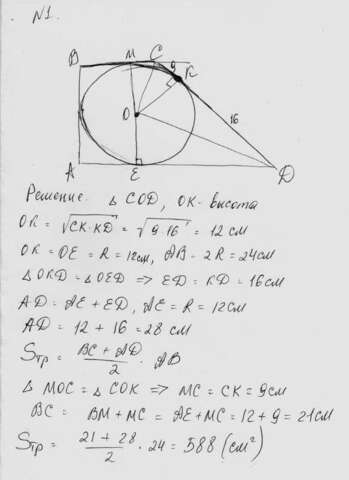 N1.
B M C
9 K
O 16
A E D
Решение. △ COD, OK - высота
OK = √CK·KD = √9·16 = 12 см
OK = OE = R = 12см, AB = 2R = 24см
△ OKD = △ OED ⇒ ED = KD = 16см
AD = AE + ED, AE = R = 12см
AD = 12 + 16 = 28 см
Sтр = (BC + AD)/2 · AB
△ MOC = △ COK ⇒ MC = CK = 9см
BC = BM + MC = AE + MC = 12 + 9 = 21см
Sтр = (21 + 28)/2 · 24 = 588 (см²)